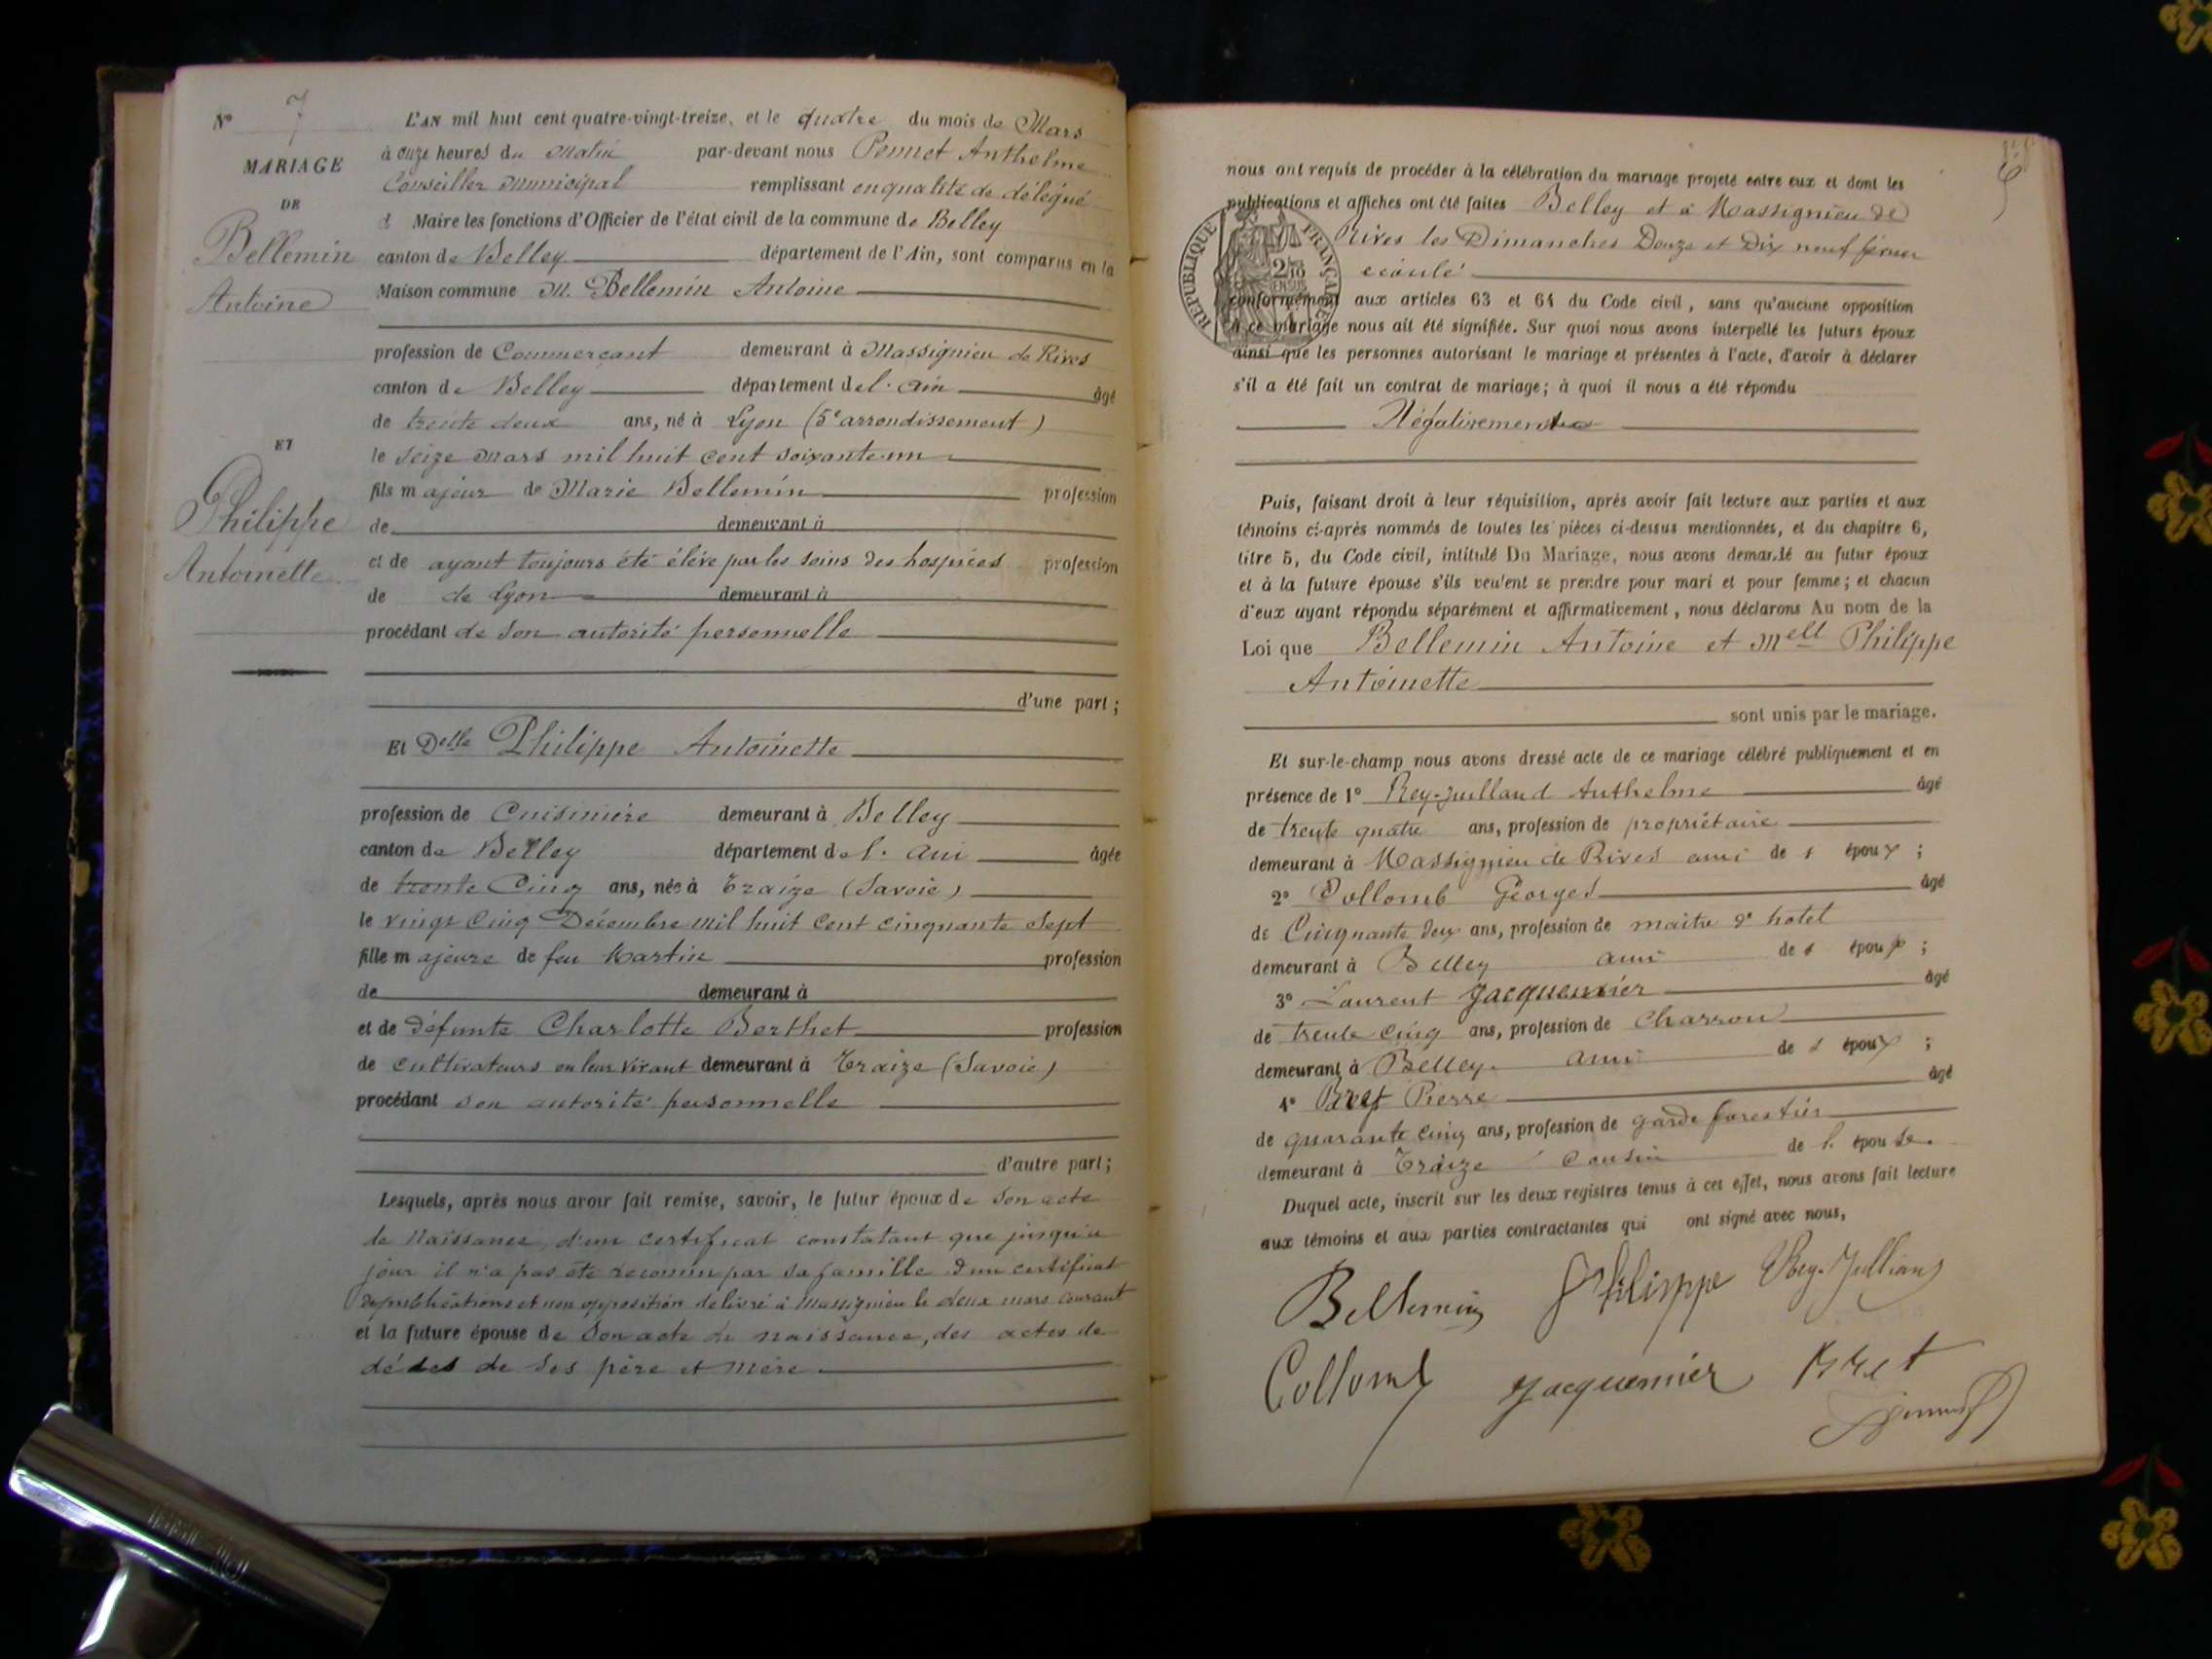 N° 7
MARIAGE
DE
Bellemin
Antoine
ET
Philippe
Antoinette
L'AN mil huit cent quatre-vingt-treize, et le quatre du mois de Mars
à onze heures du matin par-devant nous Pennet Anthelme
Conseiller Municipal remplissant en qualité de délégué
d Maire les fonctions d'Officier de l'état civil de la commune de Belley
canton de Belley département de l'Ain, sont comparus en la
Maison commune M. Bellemin Antoine
profession de Commerçant demeurant à Massignieu de Rives
canton de Belley département de l'ain âgé
de trente deux ans, né à Lyon (5e arrondissement)
le seize mars mil huit cent soixante un
fils majeur de Marie Bellemin profession
de demeurant à
et de ayant toujours été élevé par les soins des hospices profession
de de Lyon demeurant à
procédant de son autorité personnelle
d'une part;
Et Delle Philippe Antoinette
profession de Cuisinière demeurant à Belley
canton de Belley département de l'ain âgée
de trente cinq ans, née à Traize (Savoie)
le vingt cinq Décembre mil huit cent cinquante sept
fille majeure de feu Martin profession
de demeurant à
et de défunte Charlotte Berthet profession
de cultivateurs en leur vivant demeurant à Traize (Savoie)
procédant son autorité personnelle
d'autre part;
Lesquels, après nous avoir fait remise, savoir, le futur époux de son acte
de naissance, d'un certificat constatant que jusqu'à
jour il n'a pas été reconnu par sa famille d'un certificat
de publications et non opposition délivré à Massignieu le deux mars courant
et la future épouse de son acte de naissance, des actes de
décès de ses père et mère
6
nous ont requis de procéder à la célébration du mariage projeté entre eux et dont les
publications et affiches ont été faites Belley et à Massignieu de
Rives les Dimanches Douze et Dix neuf février
écoulé
RÉPUBLIQUE FRANÇAISE
conformément aux articles 63 et 64 du Code civil, sans qu'aucune opposition
à ce mariage nous ait été signifiée. Sur quoi nous avons interpellé les futurs époux
ainsi que les personnes autorisant le mariage et présentes à l'acte, d'avoir à déclarer
s'il a été fait un contrat de mariage; à quoi il nous a été répondu
Négativement
Puis, faisant droit à leur réquisition, après avoir fait lecture aux parties et aux
témoins ci-après nommés de toutes les pièces ci-dessus mentionnées, et du chapitre 6,
titre 5, du Code civil, intitulé Du Mariage, nous avons demandé au futur époux
et à la future épouse s'ils veulent se prendre pour mari et pour femme; et chacun
d'eux ayant répondu séparément et affirmativement, nous déclarons Au nom de la
Loi que Bellemin Antoine et Melle Philippe
Antoinette
sont unis par le mariage.
Et sur-le-champ nous avons dressé acte de ce mariage célébré publiquement et en
présence de 1° Rey-Juilland Anthelme âgé
de trente quatre ans, profession de propriétaire
demeurant à Massignieu de Rives ami de l époux;
2° Collomb Georges âgé
de Cinquante deux ans, profession de maître d'hotel
demeurant à Belley ami de l époux;
3° Laurent Jacquemier âgé
de trente cinq ans, profession de charron
demeurant à Belley. ami de l époux;
4° Bret Pierre âgé
de quarante cinq ans, profession de garde forestier
demeurant à Traize cousin de l' épouse.
Duquel acte, inscrit sur les deux registres tenus à cet effet, nous avons fait lecture
aux témoins et aux parties contractantes qui ont signé avec nous,
Bellemin Philippe Rey-Jullian
Collomb Jacquemier Bret